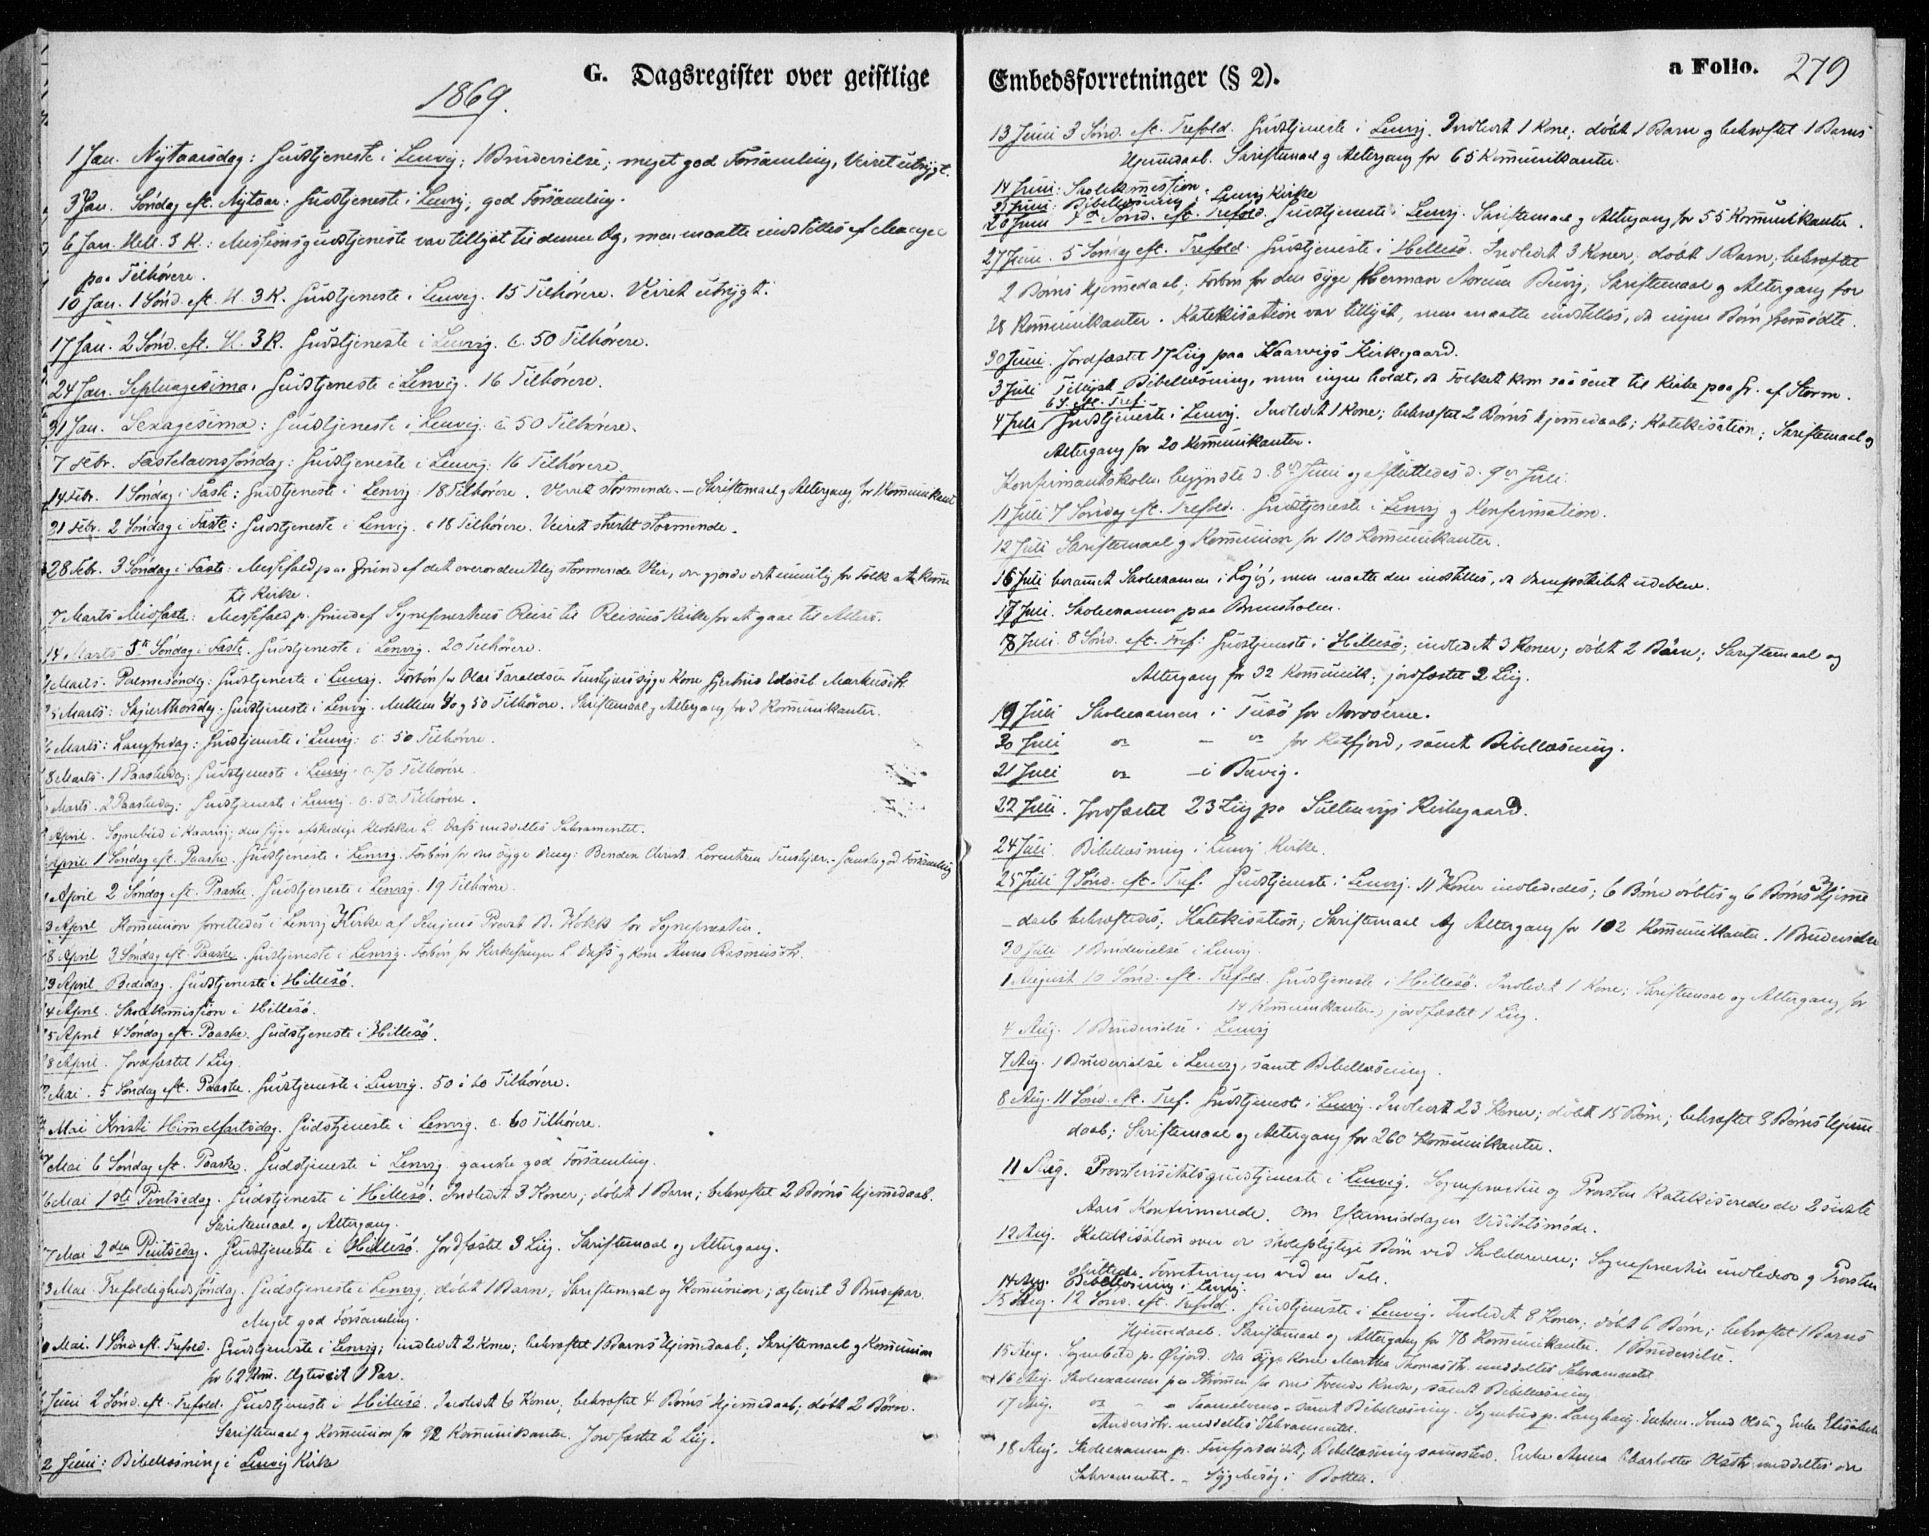 G. Dagsregister over geistlige
1869.
1 Jan. Nytaarsdag: Gudstjeneste i Lenvig; 1 Brudevielse; meget god Forsamling, Veiret utrygt.
3 Jan. Søndag eft. Nytaar: Gudstjeneste i Lenvig; god Forsamling.
6 Jan. Hell. 3 K.: Missionsgudstjeneste var tillyst til denne Dag, men maatte indstilles af Mangel
paa Tilhørere.
10 Jan. 1 Sønd. eft. H. 3 K. Gudstjeneste i Lenvig. 15 Tilhørere. Veiret utrygt.
17 Jan. 2 Sønd. eft. H. 3 K. Gudstjeneste i Lenvig. c. 50 Tilhørere.
24 Jan. Septuagesima. Gudstjeneste i Lenvig. 16 Tilhørere.
31 Jan. Sexagesima: Gudstjeneste i Lenvig. c. 50 Tilhørere.
7 Febr. Fastelavnssøndag: Gudstjeneste i Lenvig: 16 Tilhørere.
14 Febr. 1 Søndag i Faste: Gudstjeneste i Lenvig. 18 Tilhørere. Veiret stormende. – Skriftemaal og Altergang for 1 Kommunikant
21 Febr. 2 Søndag i Faste: Gudstjeneste i Lenvig. c 18 Tilhørere. Veiret stærkt stormende.
28 Febr. 3 Søndag i Faste: Messefald paa Grund af det overordentlig stormende Veir, der gjorde det umulig for Folk at komme
til Kirke.
7 Marts Midfaste: Messefald p. Grund af Sognepræstens Reise til Reisens Kirke for at gaae til Alters.
14 Marts 5te Søndag i Faste. Gudstjeneste i Lenvig. 20 Tilhørere.
Marts. Palmesøndag: Gudstjeneste i Lenvig. Forbøn for Olai Taraldsen syge Kone Markusdtr.
5 Marts: Skjærthorsdag: Gudstjeneste i Lenvig. Mellem 40 og 50 Tilhørere. Skriftemaal og Altergang for 3 Kommunikanter.
6 Marts: Langfredag: Gudstjeneste i Lenvig: c. 50 Tilhørere.
8 Marts. 1 Paaskedag: Gudstjeneste i Lenvig. c. 70 Tilhørere.
Marts. 2 Paaskedag: Gudstjeneste i Lenvig. c. 50. Tilhørere.
April. Sognebud i Kaarvig; den syge afskedige Klokker L. Dass meddeltes Sakramentet.
April 1 Søndag eft. Paaske. Gudstjeneste i Lenvig. Forbøn for den syge Christ. Lorentzen – Ganske god Forsamling
April 2 Søndag eft. Paaske. Gudstjeneste i Lenvig. 19 Tilhørere.
3 April Kommunion forrettedes i Lenvig Kirke af Senjens Provst for Sognepræsten.
8 April 3 Søndag eft. Paaske. Gudstjeneste i Lenvig. Forbøn for Kirkesanger L. Dass og Kone Anna Rasmusdtr.
3 April Bededag. Gudstjeneste i Hillesø.
4 April. Skolekommission i Hillesø.
5 April 4 Søndag eft. Paaske. Gudstjeneste i Hillesø.
8 April. Jordfæstet 1 Liig.
Mai. 5 Søndag eft. Paaske. Gudstjeneste i Lenvig. 50 à 60 Tilhørere.
Mai Kristi Himmelfartsdag. Gudstjeneste i Lenvig. c. 60 Tilhørere.
Mai 6 Søndag eft. Paaske. Gudstjeneste i Lenvig. ganske god Forsamling.
6 Mai 1ste Pintsedag. Gudstjeneste i Hillesø. Indledt 3 Koner; døbt 1 Barn; bekræftet 2 Børns Hjemmedaab.
Skriftemaal og Altergang.
7 Mai 2den Pintsedag. Gudstjeneste i Hillesø. Jordfæstet 3 Liig. Skriftemaal og Altergang.
3 Mai Trefoldighedssøndag. Gudstjeneste i Lenvig, døbt 1 Barn; Skriftemaal og Kommunion; ægteviet 3 Brudepar.
Meget god Forsamling.
Mai. 1 Sønd. eft. Trefold. Gudstjeneste i Lenvig; indledt 2 Koner; bekræftet 1 Barns Hjemmedaab; Skriftemaal og Kommunion
for 62 Kom. Ægteviet 1 Par.
Juni 2 Sønd. eft. Trefold. Gudstjeneste i Hillesø. Indledt 6 Koner; bekræftet 4 Børns Hjemmedaab; døbt 2 Børn.
Skriftemaal og Kommunion for 92 Kommunikanter. Jordfæstet 2 Liig.
2 Juni: Bibellæsning i Lenvig Kirke
Embedsforretninger (§ 2).
a Folio. 279
13 Juni 3 Sønd. eft. Trefold. Gudstjeneste i Lenvig. Indledt 1 Kone; døbt 1 Barn og bekræftet 1 Barns
Hjemmedaab. Skriftemaal og Altergang for 65 Kommunikanter.
14 Juni: Skolekommission.
Juni: Bibellæsning i Lenvig Kirke
20 Juni 4de Sønd. eft. Trefold. Gudstjeneste i Lenvig. Skriftemaal og Altergang for 55 Kommunikanter.
27 Juni. 5 Søndag eft. Trefold. Gudstjeneste i Hillesø. Indledt 3 Koner; døbt 1 Barn; bekræftet
2 Børns Hjemmedaab; Forbøn for den syge Herman Buvig; Skriftemaal og Altergang for
28 Kommunikanter. Katekisation var tillyst, men maatte indstilles, da ingen Børn fremmødte.
30 Juni. Jordfæstet 17 Liig paa Kaarvigs Kirkegaard.
3 Juli Tillyst Bibellæsning, men ingen holdt, da Folket kom saa sent til Kirke paa Gr. af Storm.
6 S. eft. Tref.
4 Juli Gudstjeneste i Lenvig. Indledt 1 Kone; bekræftet 2 Børns Hjemmedaab; Katekisation; Skriftemaal og
Altergang for 20 Kommunikanter.
Konfirmantskolen begyndte d. 8de Juni og afsluttedes d. 9de Juli.
11 Juli 7 Søndag eft. Trefold. Gudstjeneste i Lenvig og Konfirmation.
12 Juli Skriftemaal og Kommunion for 110 Kommunikanter.
16 Juli berammet Skoleexamen i men maatte den indstilles, da udeblev.
17 Juli. Skoleexamen paa Brensholmen.
18 Juli. 8 Sønd. eft. Tref: Gudstjeneste i Hillesø; indledt 3 Koner; døbt 2 Børn; Skriftemaal og
Altergang for 32 Kommunik; jordfæstet 2 Liig.
19 Juli Skoleexamen i Tusø for
20 Juli do – do for Katfjord, samt Bibellæsning.
21 Juli do – i Buvig.
22 Juli. Jordfæstet 23 Liig paa Kirkegaard.
24 Juli. Bibellæsning i Lenvig Kirke.
25 Juli 9 Sønd. eft. Tref. Gudstjeneste i Lenvig. 11 Koner indlededes; 6 Børn døbtes og 6 Børns Hjemme
-daab bekræftedes; Katekisation; Skriftemaal og Altergang for 102 Kommunikanter. 1 Brudevielse
30 Juli 1 Brudevielse i Lenvig.
1 August 10 Sønd. eft. Trefold. Gudstjeneste i Hillesø. Indledt 1 Kone; Skriftemaal og Altergang for
14 Kommunikanter, jordfæstet 1 Liig.
4 Aug. 1 Brudevielse i Lenvig
7 Aug. 1 Brudevielse i Lenvig, samt Bibellæsning.
8 Aug. 11 Sønd. eft. Tref. Gudstjeneste i Lenvig. Indledt 23 Koner; døbt 15 Børn; bekræftet 8 Børns Hjemme-
daab; Skriftemaal og Altergang for 260 Kommunikanter.
11 Aug. Provstevisitatsgudstjeneste i Lenvig. Sognepræsten og Provsten katekiserede de 2 sidste
Aars Konfirmerede. Om Eftermiddagen Visitatsmøde.
12 Aug. Katekisation over de skolepligtige Børn ved Skolelærerne; Sognepræsten indledede og Provsten
sluttede Forretningen ved en Tale.
14 Aug. Bibellæsning i Lenvig.
15 Aug. 12 Sønd. eft. Trefold. Gudstjeneste i Lenvig. Indledt 8 Koner; døbt 6 Børn; bekræftet 1 Barns
Hjemmedaab. Skriftemaal og Altergang for 78 Kommunikanter. 1 Brudevielse.
15 Aug. Sognebud p. Øijord. Den syge Kone Martha Thomasdtr. meddeltes Sakramentet
16 Aug. Skoleexamen paa samt Bibellæsning
17 Aug. do – samt Bibellæsning. Sognebud p. Enken Olsen og Enke Elisabeth
Andersdtr. meddeltes Sakramentet.
18 Aug. Skoleexamen p. Finfjordeidet; Bibellæsning sammesteds. Enke Anna Charlotte Olsdtr meddeltes der
Sakramentet. – Sygebesøg i Botten.